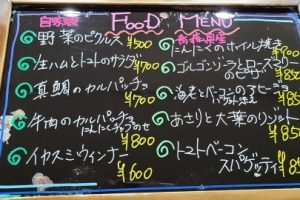 自家製 FOOD MENU
野菜のピクルス ¥500
生ハムとトマトのサラダ ¥700
真鯛のカルパッチョ ¥700
牛肉のカルパッチョ
にんにくチップのせ ¥800
イカスミウィンナー ¥600
青森県産
にんにくのホイル焼き
ゴルゴンゾーラとローズマリー
のピザ
海老とベーコンのアヒージョ
バケット添え
あさりと大葉のリゾット
トマトベーコン
スパゲッティ